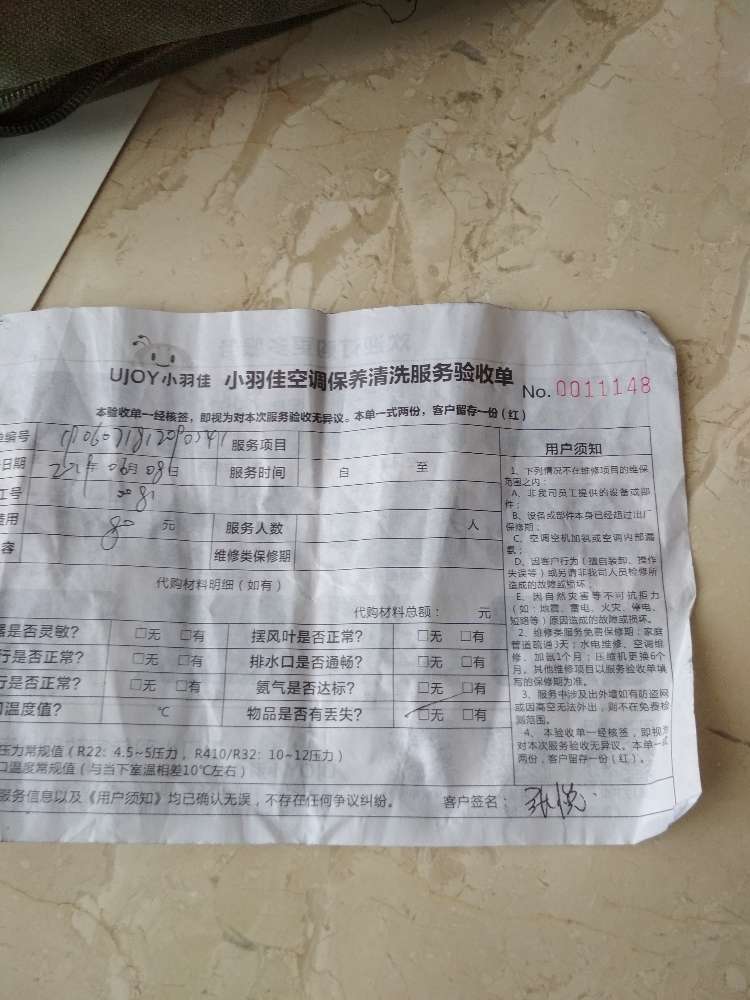 UJOY小羽佳 小羽佳空调保养清洗服务验收单 No. 0011148
本验收单一经核签，即视为对本次服务验收无异议。本单一式两份，客户留存一份（红）
编号 服务项目
日期 06月08日 服务时间 自 至
工号 2081
费用 80 元 服务人数 人
容 维修类保修期
代购材料明细（如有）
代购材料总额： 元
器是否灵敏？ □无 □有 摆风叶是否正常？ □无 □有
行是否正常？ □无 □有 排水口是否通畅？ □无 □有
行是否正常？ □无 □有 氨气是否达标？ □无 □有
温度值？ ℃ 物品是否有丢失？ □无 □有
压力常规值（R22：4.5~5压力，R410/R32：10~12压力）
口温度常规值（与当下室温相差10℃左右）
服务信息以及《用户须知》均已确认无误，不存在任何争议纠纷。 客户签名： 张悦
用户须知
1、下列情况不在维修项目的维保
范围之内：
A、非我司员工提供的设备或部
件；
B、设备或部件本身已经超过出厂
保修期；
C、空调空机加装或空调内部漏
氨；
D、因客户行为（擅自装卸、操作
失误等）或另请非我司人员检修所
造成的故障或损坏；
E、因自然灾害等不可抗拒力
（如：地震、雷电、火灾、停电、
短路等）原因造成的故障或损坏。
2、维修类服务免费保修期：家庭
管道疏通3天；水电维修、空调维
修、加氨1个月；压缩机更换6个
月，其他维修项目以服务验收单填
写的保修期为准。
3、服务中涉及出外墙如有防盗网
或因高空无法外出，则不在免费检
测范围。
4、本验收单一经核签，即视为
对本次服务验收无异议。本单一式
两份，客户留存一份（红）。